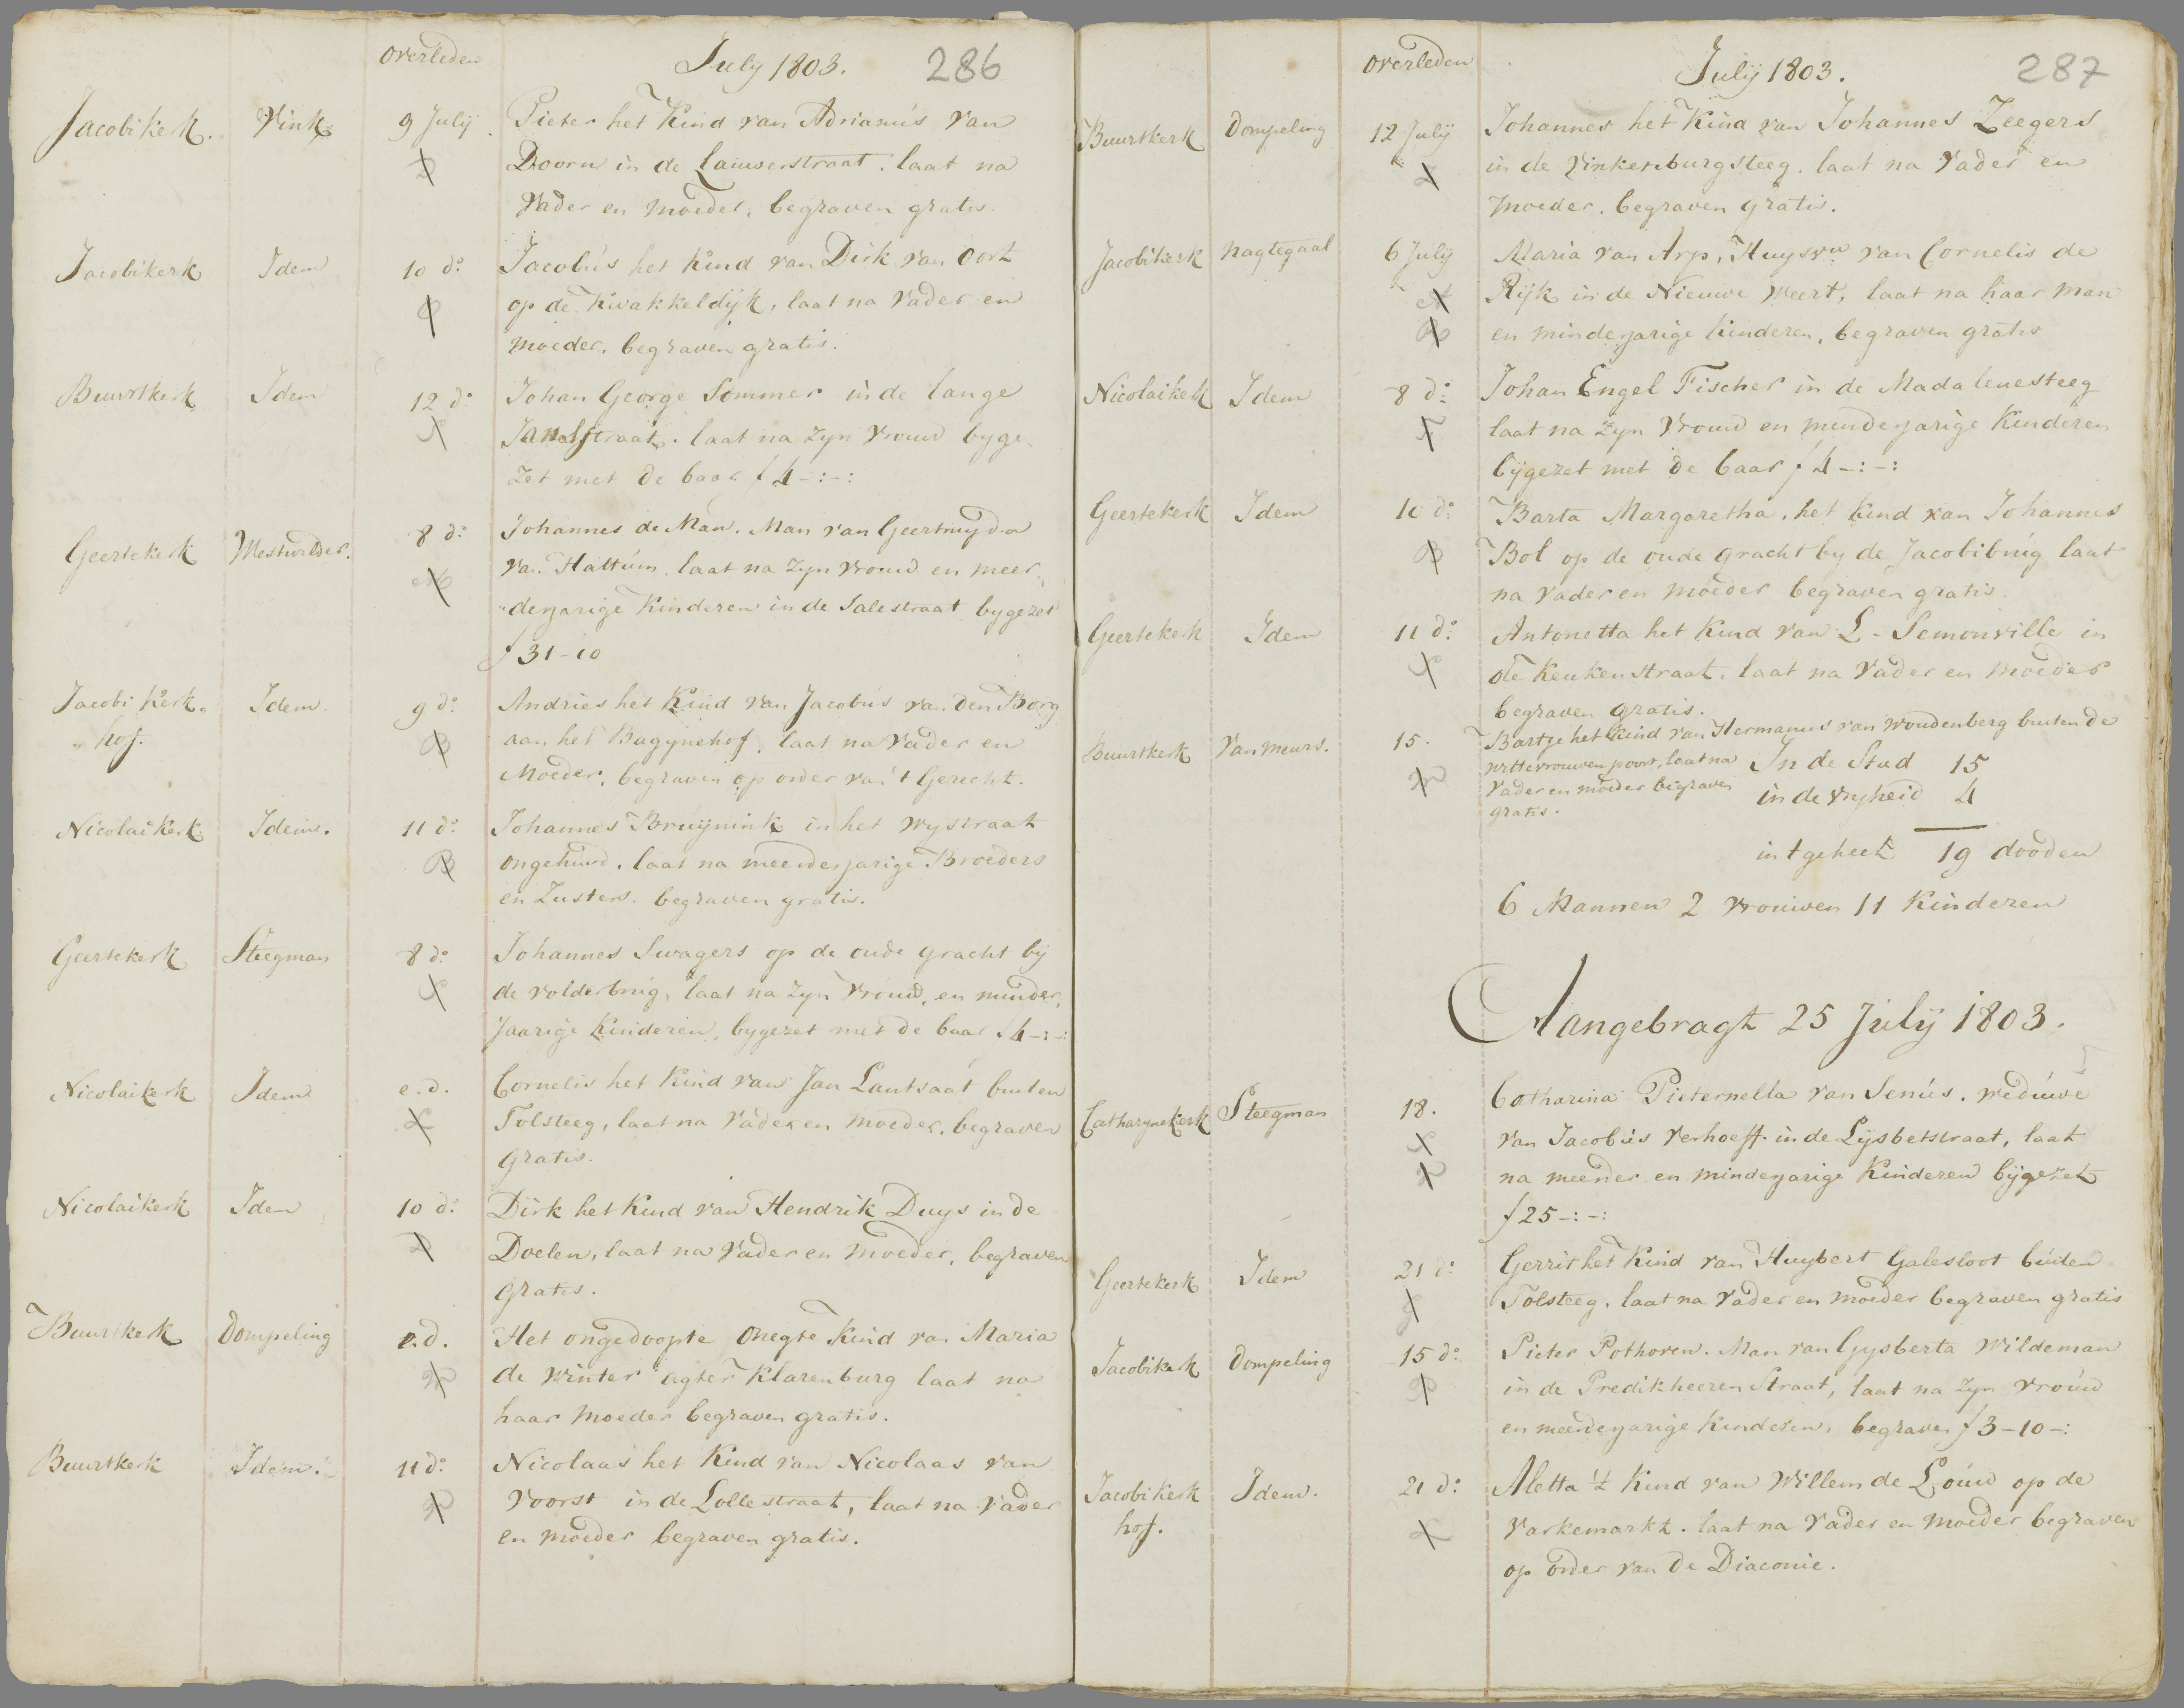 overleden July 1803. 286
Jacobikerk. Vink. 9 July Pieter het Kind van Adrianus van
Doorn in de Lauwerstraat. laat na
Vader en moeder, begraven gratis.
Jacobikerk Idem 10 do. Jacobus het kind van Dirk van Oort
op de Kwakkeldijk, laat na Vader en
moeder. begraven gratis.
Buurtkerk Idem 12 do. Johan George Sommer in de lange
Jansstraat. laat na zyn vrouw byge-
zet met de baar f 4-:-:
Geertekerk Mestvelder. 8 do. Johannes de Man. Man van Geertruyda
van Hattum. laat na zyn vrouw en meer-
"derjarige Kinderen in de Salestraat bygezet
f 31-10
Jacobi Kerk- Idem. 9 do. Andries het Kind van Jacobus van den Borg
"hof. aan het Bagynehof, laat na Vader en
Moeder, begraven op order van 't Gerecht.
Nicolaikerk Idem. 11 do. Johannes Bruynink in het Wystraat
ongehuwd. laat na meerderjarige Broeders
en Zusters. begraven gratis.
Geertekerk Steegman 8 do. Johannes Swagers op de oude gracht bij
de volderbrug, laat na zyn vrouw, en minder,
Jaarige Kinderen, bygezet met de baar f 4-:-:
Nicolaikerk Idem e.d. Cornelis het Kind van Jan Lantsaat buiten
Tolsteeg, laat na Vader en moeder, begraven
gratis.
Nicolaikerk Idem 10 do. Dirk het Kind van Hendrik Duys in de
Doelen, laat na Vader en moeder, begraven
gratis.
Buurtkerk Dompeling e.d. Het ongedoopte onegte Kind van Maria
de Winter agter Klarenburg laat na
haar moeder begraven gratis.
Buurtkerk Idem. 11 do. Nicolaas het Kind van Nicolaas van
Voorst in de Lollestraat, laat na Vader
en moeder begraven gratis.
overleden July 1803. 287
Buurtkerk Dompeling 12 July Johannes het Kind van Johannes Zeegers
in de Vinkenburgsteeg. laat na Vader en
moeder. begraven gratis.
Jacobikerk Nagtegaal 6 July Maria van Arp, Huysvw van Cornelis de
Rijk in de Nieuwe Weert, laat na haar man
en minderjarige kinderen, begraven gratis
Nicolaikerk Idem 8 do. Johan Engel Fischer in de Madalenesteeg
laat na zyn Vrouw en minderjarige Kinderen
bijgezet met de baar f 4-:-:
Geertekerk Idem 10 do. Barta Margaretha, het kind van Johannes
Bol op de oude gracht by de Jacobibrug laat
na Vader en moeder begraven gratis.
Geertekerk Idem 11 do. Antonetta het Kind van L. Semonville in
de Keukenstraat, laat na Vader en moeder
begraven gratis.
Buurtkerk Van Meurs. 15. Bartje het kind van Hermanus van Woudenberg buiten de
wittevrouwen poort, laat na In de Stad 15
Vader en moeder begraven in de vryheid 4
gratis.
in 't geheel 19 dooden
6 Mannen 2 Vrouwen 11 Kinderen
Aangebragt 25 July 1803.
Catharynekerk Steegman 18. Catharina Pieternella van Senus. weduwe
van Jacobus Verhoeff. in de Lysbetstraat, laat
na meerder en minderjarige Kinderen bijgezet
f 25-:-:
Geertekerk Idem 21 do. Gerrit het Kind van Huybert Galesloot buiten
Tolsteeg, laat na Vader en moeder begraven gratis
Jacobikerk Dompeling 15 do. Pieter Pothoven. Man van Gysberta Wildeman
in de Predikheeren Straat, laat na zyn vrouw
en meerderjarige kinderen, begraven f 3-10-:
Jacobikerk Idem. 21 do. Aletta 't Kind van Willem de Louw op de
hof. Varkemarkt. laat na Vader en Moeder begraven
op order van de Diaconie.